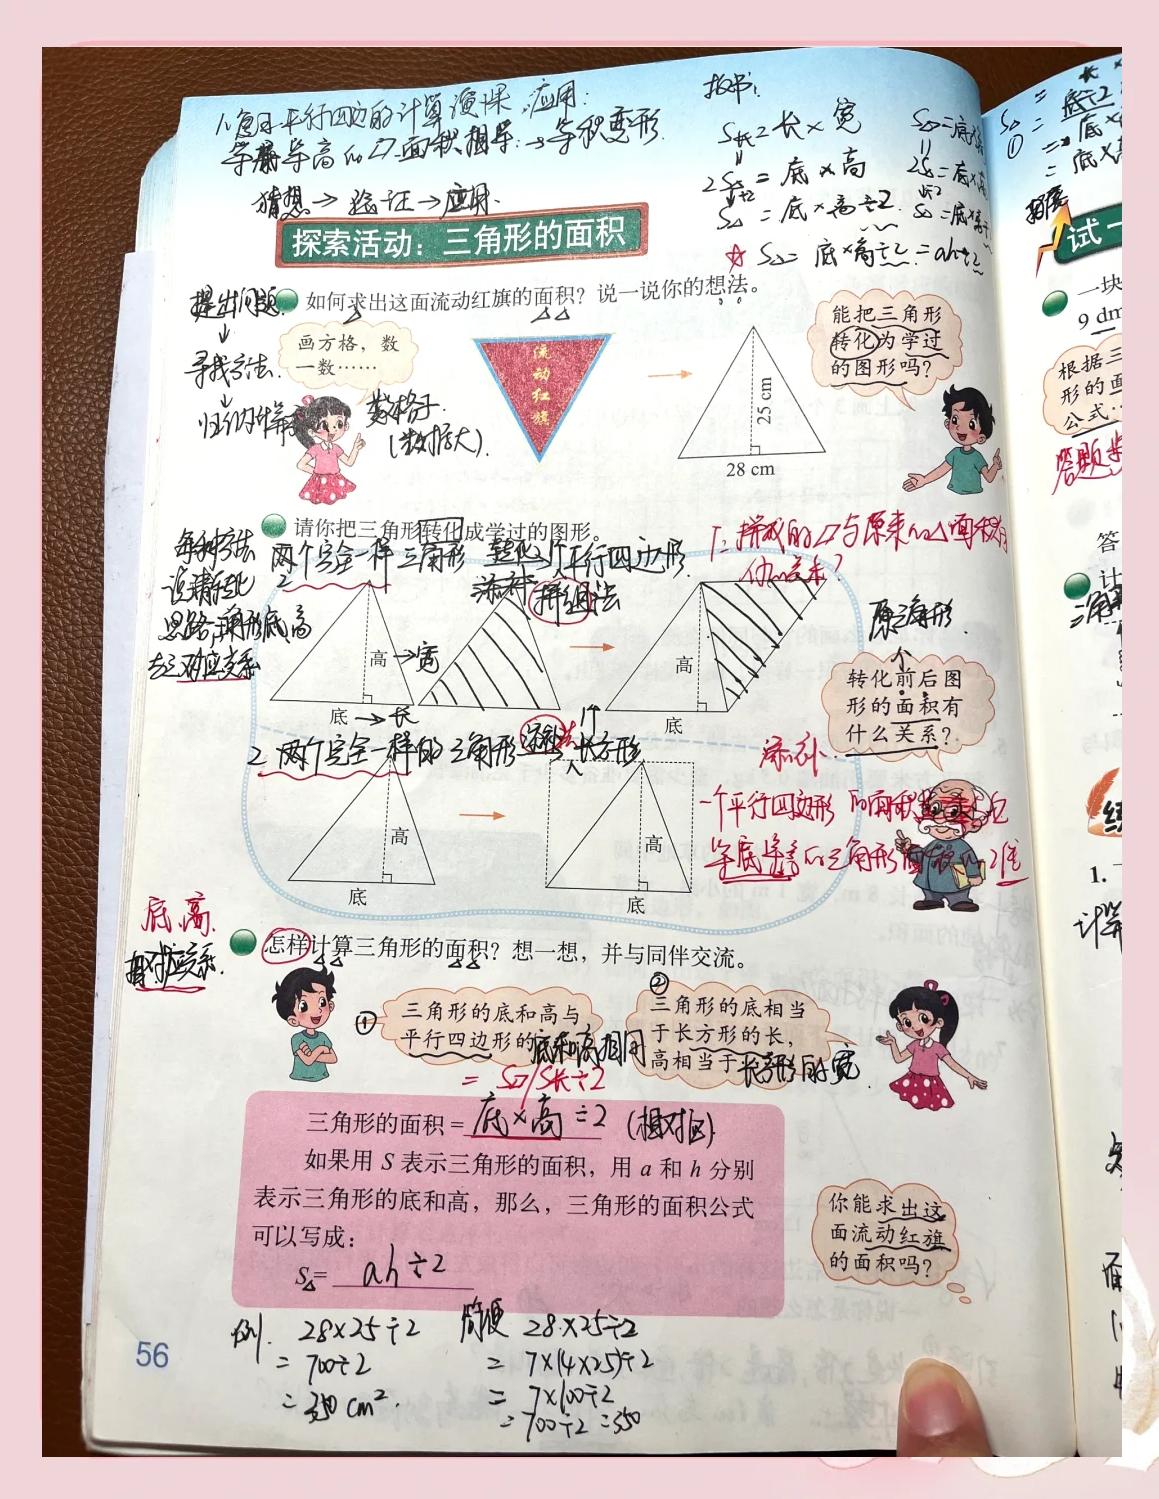 1.复习平行四边的计算
应用:
等底等高的▱面积相等→等积变形
猜想→验证→应用
板书:
S长=长×宽
=底×高
S△=底×高÷2
☆ S△=底×高÷2=ah÷2
探索活动：三角形的面积
提出问题
↓
寻找方法
↓
如何求出这面流动红旗的面积？说一说你的想法。
画方格，数
一数……
数格子
流动红旗
25 cm
28 cm
能把三角形
转化为学过
的图形吗？
请你把三角形转化成学过的图形。
两个完全一样三角形 转化 1个平行四边形
拼组法
每种方法
思路:三角形底、高
1.拼成的▱与原来的△面积有
什么关系?
高→宽
底→长
高
底
原三角形
转化前后图
形的面积有
什么关系？
2.两个完全一样的三角形 长方形
添补
高
底
高
底
一个平行四边形的面积是
等底等高的三角形面积的2倍
底、高
相对应关系.
怎样计算三角形的面积？想一想，并与同伴交流。
① 三角形的底和高与
平行四边形的底和高相同
② 三角形的底相当
于长方形的长，
高相当于长方形的宽
= S▱/S长÷2
三角形的面积=底×高÷2 (相对应)
如果用 S 表示三角形的面积，用 a 和 h 分别
表示三角形的底和高，那么，三角形的面积公式
可以写成：
S△= ah÷2
你能求出这
面流动红旗
的面积吗？
例. 28×25÷2
=700÷2
=350cm².
简便 28×25÷2
=7×(4×25)÷2
=7×100÷2
=700÷2=350
56
试一
一块
9 dm
根据三
形的面
公式…
答
计
练
1.
计算